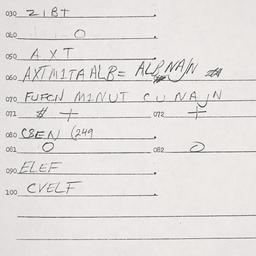 030 ZIBT
040 O
050 AXT
060 AXTM1TA ALB= ALB NA/N
070 FUFCN M1NUT CU NA/N
071 # + 072 +
080 CBEN (249
081 O 082 O
090 ELEF
100 CVELF